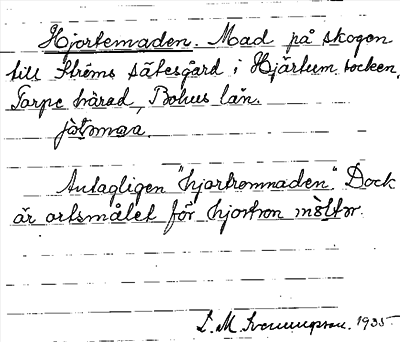 Hjortemaden. Mad på skogen
till Ströms sätesgård i Hjärtum socken,
Torpe härad, Bohus län.

Antagligen "hjortronmaden". Dock
är ortsmålet för hjortron möltor.
L. M. Svenungsson. 1935